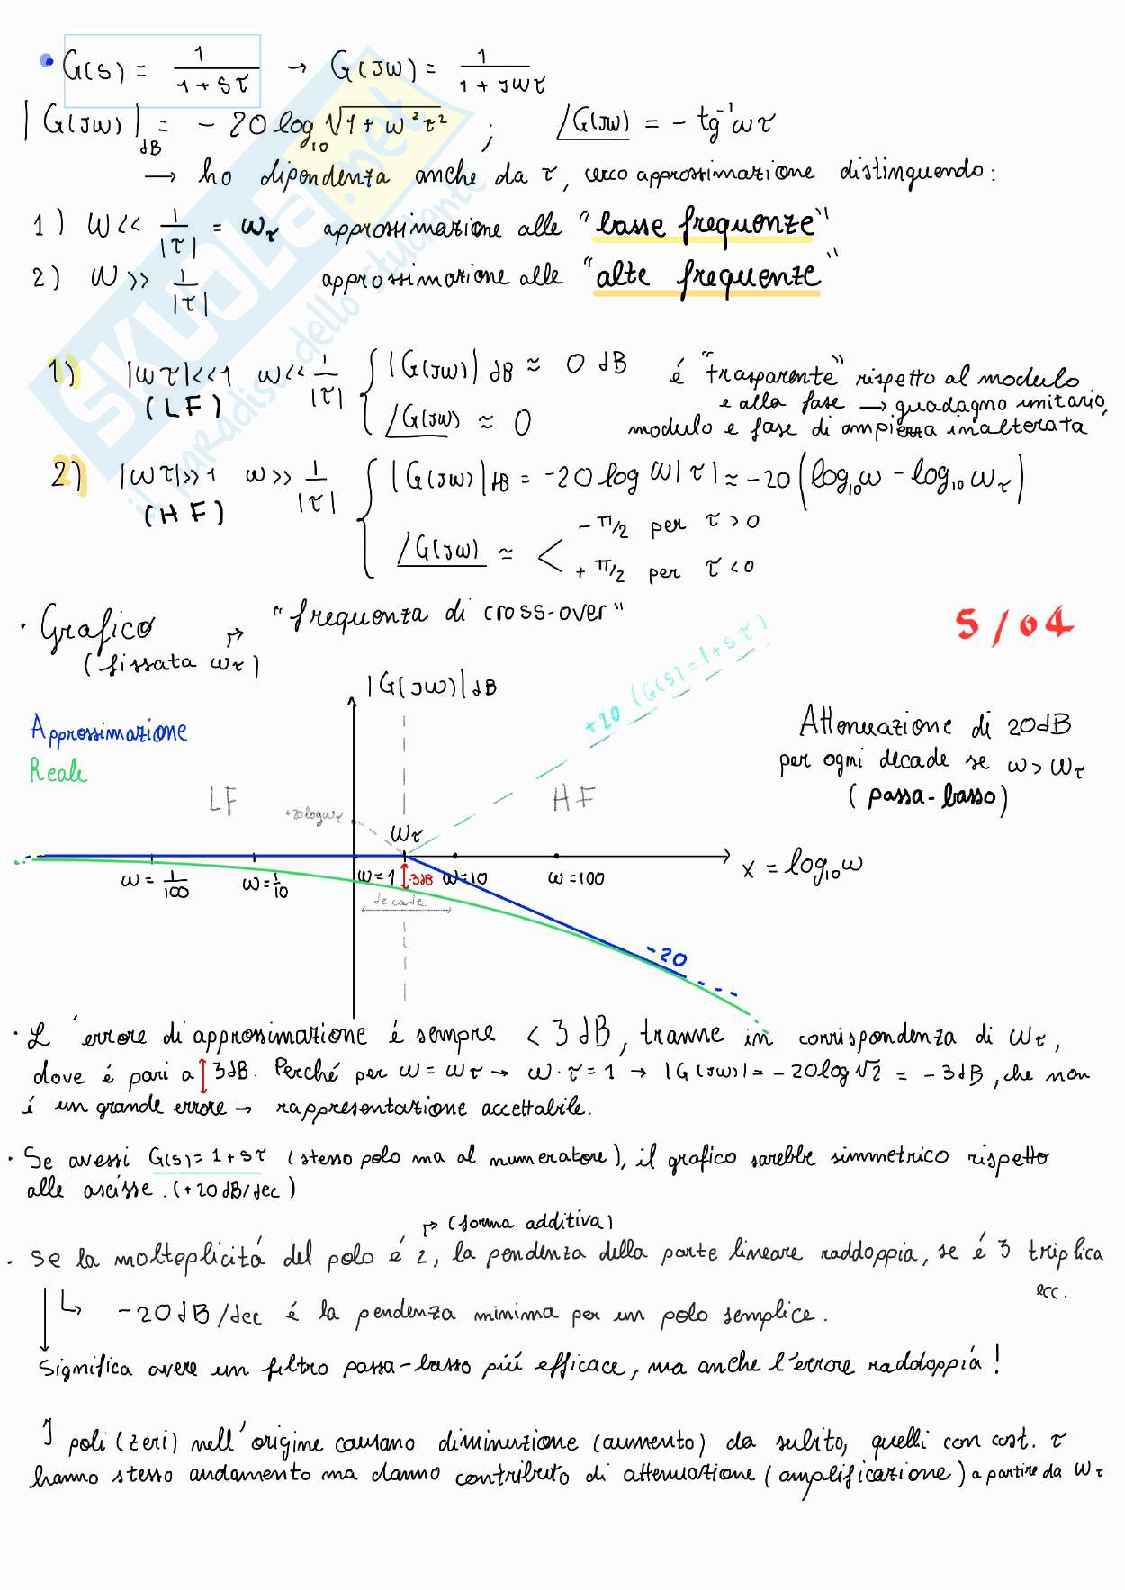 • G(s) = 1/(1+sτ) → G(jω) = 1/(1+jωτ)
|G(jω)|dB = -20 log10 √(1+ω²τ²) ; /G(jω) = -tg⁻¹ωτ
→ ho dipendenza anche da τ, cerco approssimazione distinguendo:
1) ω << 1/|τ| = ωτ approssimazione alle "basse frequenze"
2) ω >> 1/|τ| approssimazione alle "alte frequenze"
1) |ωτ|<<1 ω<< 1/|τ| { |G(jω)|dB ≈ 0 dB é "trasparente" rispetto al modulo
(LF) /G(jω) ≈ 0 e alla fase → guadagno unitario,
modulo e fase di ampiezza inalterata
2) |ωτ|>>1 ω>> 1/|τ| { |G(jω)|dB = -20 log ω|τ| ≈ -20 (log10ω - log10 ωτ)
(HF) /G(jω) ≈ < -π/2 per τ>0
+π/2 per τ<0
· Grafico ↱ "frequenza di cross-over"
(fissata ωτ)
5/04
|G(jω)|dB
+20 (G(s)=1+sτ)
Approssimazione
Reale
Attenuazione di 20dB
per ogni decade se ω>ωτ
(passa-basso)
LF
HF
+20logωτ
ωτ
ω=1/100
ω=1/10
ω=1
3dB
ω=10
ω=100
x = log10ω
decade
-20
· L'errore di approssimazione é sempre < 3 dB, tranne in corrispondenza di ωτ,
dove é pari a ↕3dB. Perché per ω=ωτ → ω·τ=1 → |G(jω)|=-20log√2 = -3dB, che non
é un grande errore → rappresentazione accettabile.
· Se avessi G(s)=1+sτ (stesso polo ma al numeratore), il grafico sarebbe simmetrico rispetto
alle ascisse. (+20dB/dec)
↱ (forma additiva)
· Se la molteplicitá del polo é 2, la pendenza della parte lineare raddoppia, se é 3 triplica
ecc.
↳ -20dB/dec é la pendenza minima per un polo semplice.
Significa avere un filtro passa-basso piú efficace, ma anche l'errore raddoppia!
I poli (zeri) nell'origine causano diminuzione (aumento) da subito, quelli con cost. τ
hanno stesso andamento ma danno contributo di attenuazione (amplificazione) a partire da ωτ
SKUOLA.net
il paradiso dello studente